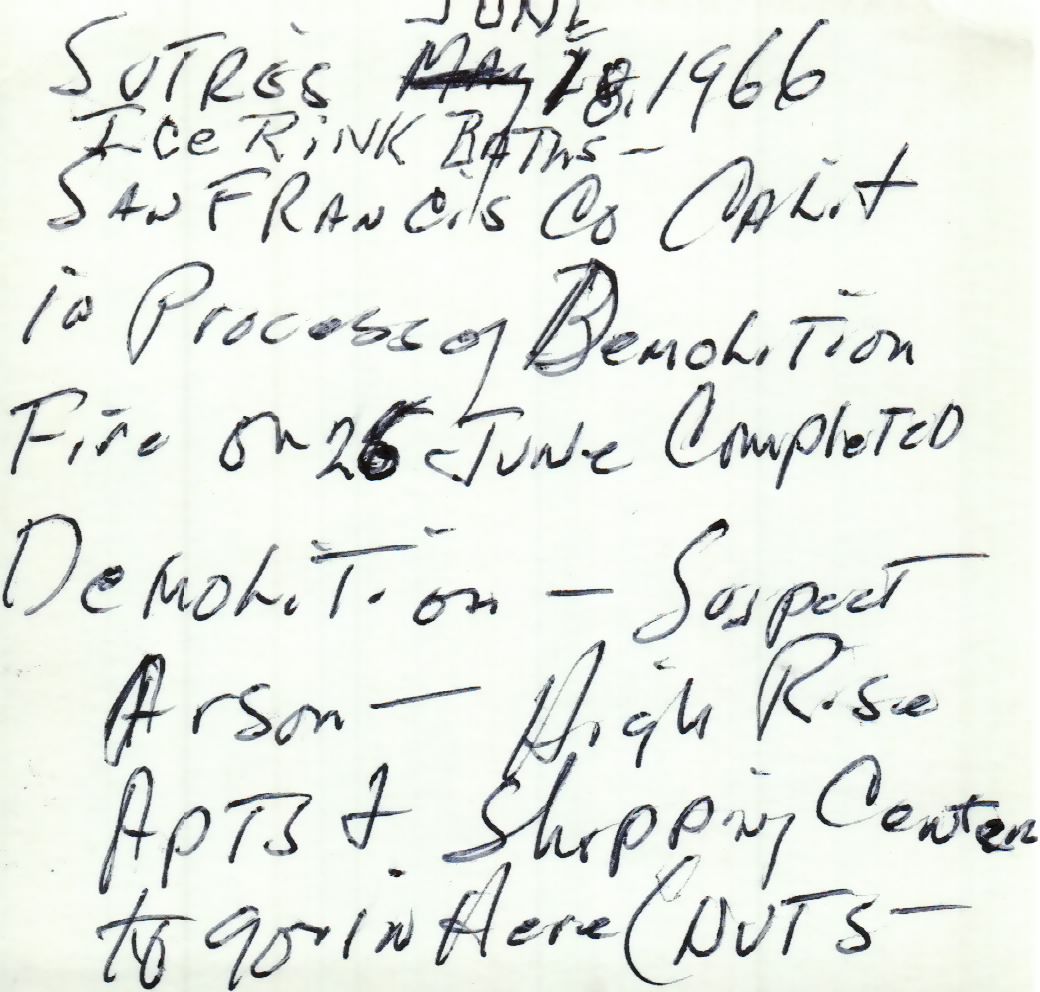 JUNE
SUTRES May 18, 1966
Ice RiNK BATHS –
SAN FRANCiS Co CALiF
in Process of DemoLiTion
Fire on 26 JUNe CompleTeD
DemoLiTion – Suspect
Arson – High Rise
APTS & Shopping Center
to go in Here (NUTS –